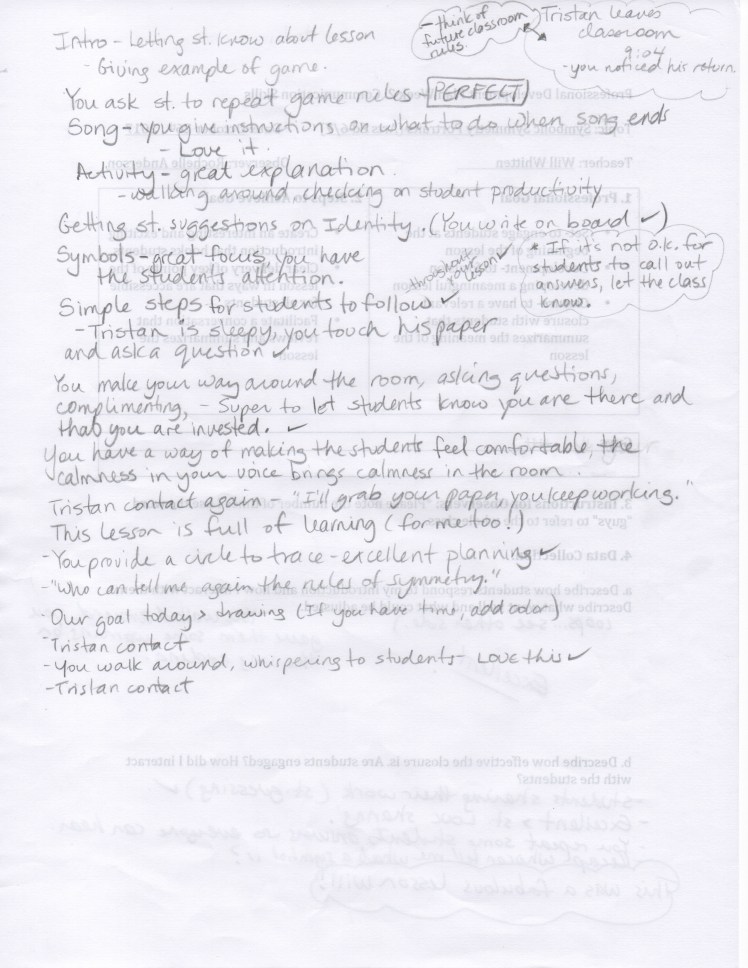 Intro - Letting st. know about lesson
- Giving example of game.
- think of
future classroom
rules.
Tristan leaves
classroom
9:04
- you noticed his return.
You ask st. to repeat game rules PERFECT
Song - you give instructions on what to do when song ends
- Love it.
Activity - great explanation.
- walking around checking on student productivity
Getting st. suggestions on Identity. (You write on board ✓)
Symbols - great focus, you have
the students attention.
thoughout
your
lesson ✓
* If it's not o.k. for
students to call out
answers, let the class
know.
Simple steps for students to follow ✓
- Tristan is sleepy, you touch his paper
and ask a question ✓
You make your way around the room, asking questions,
complimenting, - Super to let students know you are there and
that you are invested. ✓
You have a way of making the students feel comfortable, the
calmness in your voice brings calmness in the room.
Tristan contact again - "I'll grab your paper, you keep working."
This lesson is full of learning (for me too!)
- You provide a circle to trace - excellent planning ✓
- "Who can tell me again the rules of symmetry."
- Our goal today > drawing (If you have time, add color)
- Tristan contact
- You walk around, whispering to students - LOVE this ✓
- Tristan contact